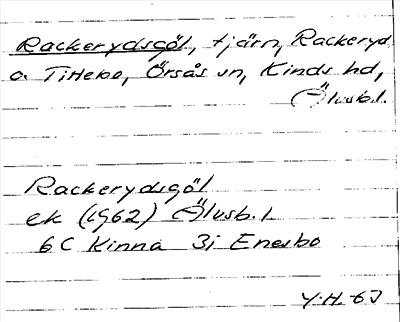 Rackerydsgöl, tjärn, Rackeryd
o. Tittebo, Örsås sn, Kinds hd,
Älvsb.l.
Rackerydsgöl
ek (1962) Älvsb.l.
6C Kinna 3i Enesbo
Y.H.-63